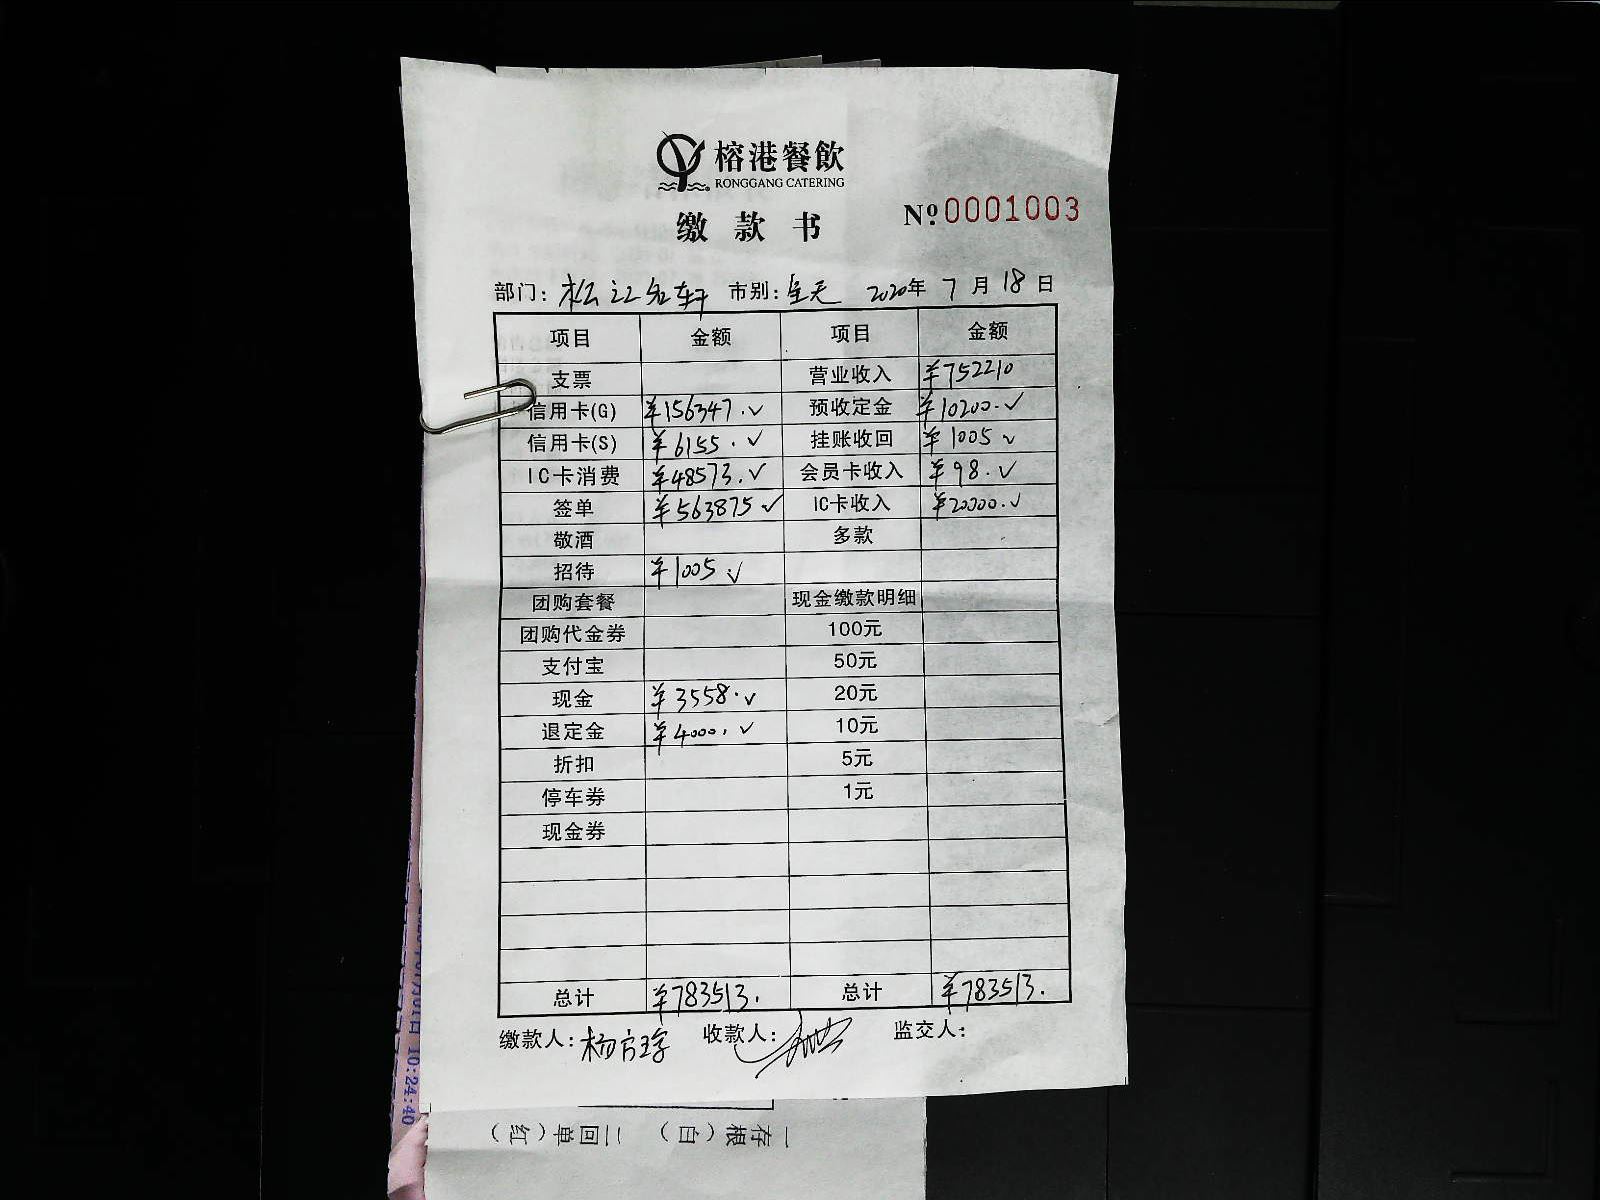 榕港餐飲
RONGGANG CATERING
缴款书
№0001003
部门: 松江名轩 市别: 全天 2020年 7月 18日
项目 金额 项目 金额
支票 营业收入 ¥752210
信用卡(G) ¥156347.✓ 预收定金 ¥10200.✓
信用卡(S) ¥6155.✓ 挂账收回 ¥1005✓
IC卡消费 ¥48573.✓ 会员卡收入 ¥98.✓
签单 ¥563875✓ IC卡收入 ¥20000.✓
敬酒 多款
招待 ¥1005✓
团购套餐 现金缴款明细
团购代金券 100元
支付宝 50元
现金 ¥3558.✓ 20元
退定金 ¥4000.✓ 10元
折扣 5元
停车券 1元
现金券
总计 ¥783513. 总计 ¥783513.
缴款人: 收款人: 监交人:
一存根(白) 二回单(红)
10:24:40